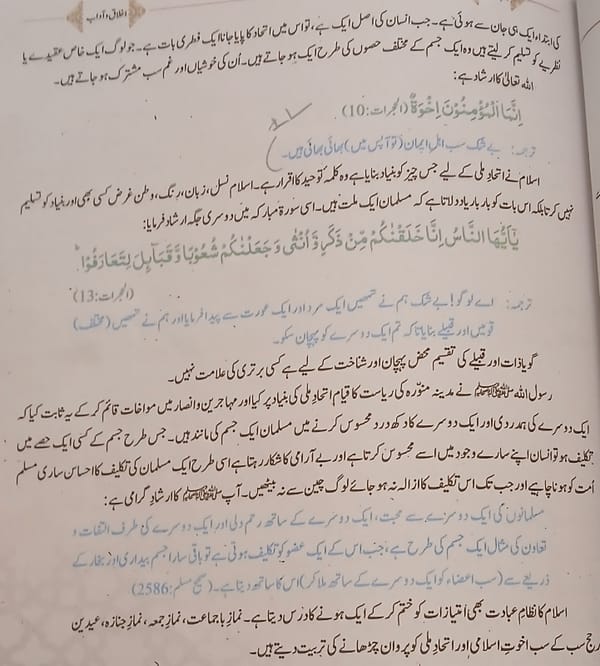 اخلاق و آداب
کی ابتداء ایک ہی جان سے ہوئی ہے۔ جب انسان کی اصل ایک ہے، تو اس میں اتحاد کا پایا جانا ایک فطری بات ہے۔ جو لوگ ایک خاص عقیدے یا
نظریے کو تسلیم کر لیتے ہیں وہ ایک جسم کے مختلف حصوں کی طرح ایک ہو جاتے ہیں۔ اُن کی خوشیاں اور غم سب مشترک ہو جاتے ہیں۔
اللہ تعالیٰ کا ارشاد ہے:
اِنَّمَا الْمُؤْمِنُوْنَ اِخْوَةٌ (الحجرات:10)
ترجمہ: بے شک سب اہل ایمان (تو آپس میں) بھائی بھائی ہیں۔
اسلام نے اتحادِ ملی کے لیے جس چیز کو بنیاد بنایا ہے وہ کلمہ توحید کا اقرار ہے۔ اسلام نسل، زبان، رنگ، وطن غرض کسی بھی اور بنیاد کو تسلیم
نہیں کرتا بلکہ اس بات کو بار بار یاد دلاتا ہے کہ مسلمان ایک ملت ہیں۔ اسی سورۃ مبارکہ میں دوسری جگہ ارشاد فرمایا:
يٰٓاَيُّهَا النَّاسُ اِنَّا خَلَقْنٰكُمْ مِّنْ ذَكَرٍ وَّ اُنْثٰى وَ جَعَلْنٰكُمْ شُعُوْبًا وَّ قَبَآىِٕلَ لِتَعَارَفُوْا ؕ
(الحجرات:13)
ترجمہ: اے لوگو! بے شک ہم نے تمھیں ایک مرد اور ایک عورت سے پیدا فرمایا اور ہم نے تمھیں (مختلف)
قومیں اور قبیلے بنایا تاکہ تم ایک دوسرے کو پہچان سکو۔
گویا ذات اور قبیلے کی تقسیم محض پہچان اور شناخت کے لیے ہے کسی برتری کی علامت نہیں۔
رسول اللہ ﷺ نے مدینہ منوّرہ کی ریاست کا قیام اتحادِ ملی کی بنیاد پر کیا اور مہاجرین و انصار میں مواخات قائم کر کے یہ ثابت کیا کہ
ایک دوسرے کی ہمدردی اور ایک دوسرے کا دکھ درد محسوس کرنے میں مسلمان ایک جسم کی مانند ہیں۔ جس طرح جسم کے کسی ایک حصے میں
تکلیف ہو تو انسان اپنے سارے وجود میں اسے محسوس کرتا ہے اور بے آرامی کا شکار رہتا ہے اسی طرح ایک مسلمان کی تکلیف کا احساس ساری مسلم
اُمت کو ہونا چاہیے اور جب تک اس تکلیف کا ازالہ نہ ہو جائے لوگ چین سے نہ بیٹھیں۔ آپ ﷺ کا ارشادِ گرامی ہے:
مسلمانوں کی ایک دوسرے سے محبت، ایک دوسرے کے ساتھ رحم دلی اور ایک دوسرے کی طرف التفات و
تعاون کی مثال ایک جسم کی طرح ہے، جب اس کے ایک عضو کو تکلیف ہوتی ہے تو باقی سارا جسم بیداری اور بخار کے
ذریعے سے (سب اعضاء کو ایک دوسرے کے ساتھ ملا کر) اس کا ساتھ دیتا ہے۔ (صحیح مسلم:2586)
اسلام کا نظامِ عبادت بھی اُمتیازات کو ختم کر کے ایک ہونے کا درس دیتا ہے۔ نمازِ باجماعت، نمازِ جمعہ، نمازِ جنازہ، عیدین
حج سب کے سب اخوتِ اسلامی اور اتحادِ ملی کو پروان چڑھانے کی تربیت دیتے ہیں۔